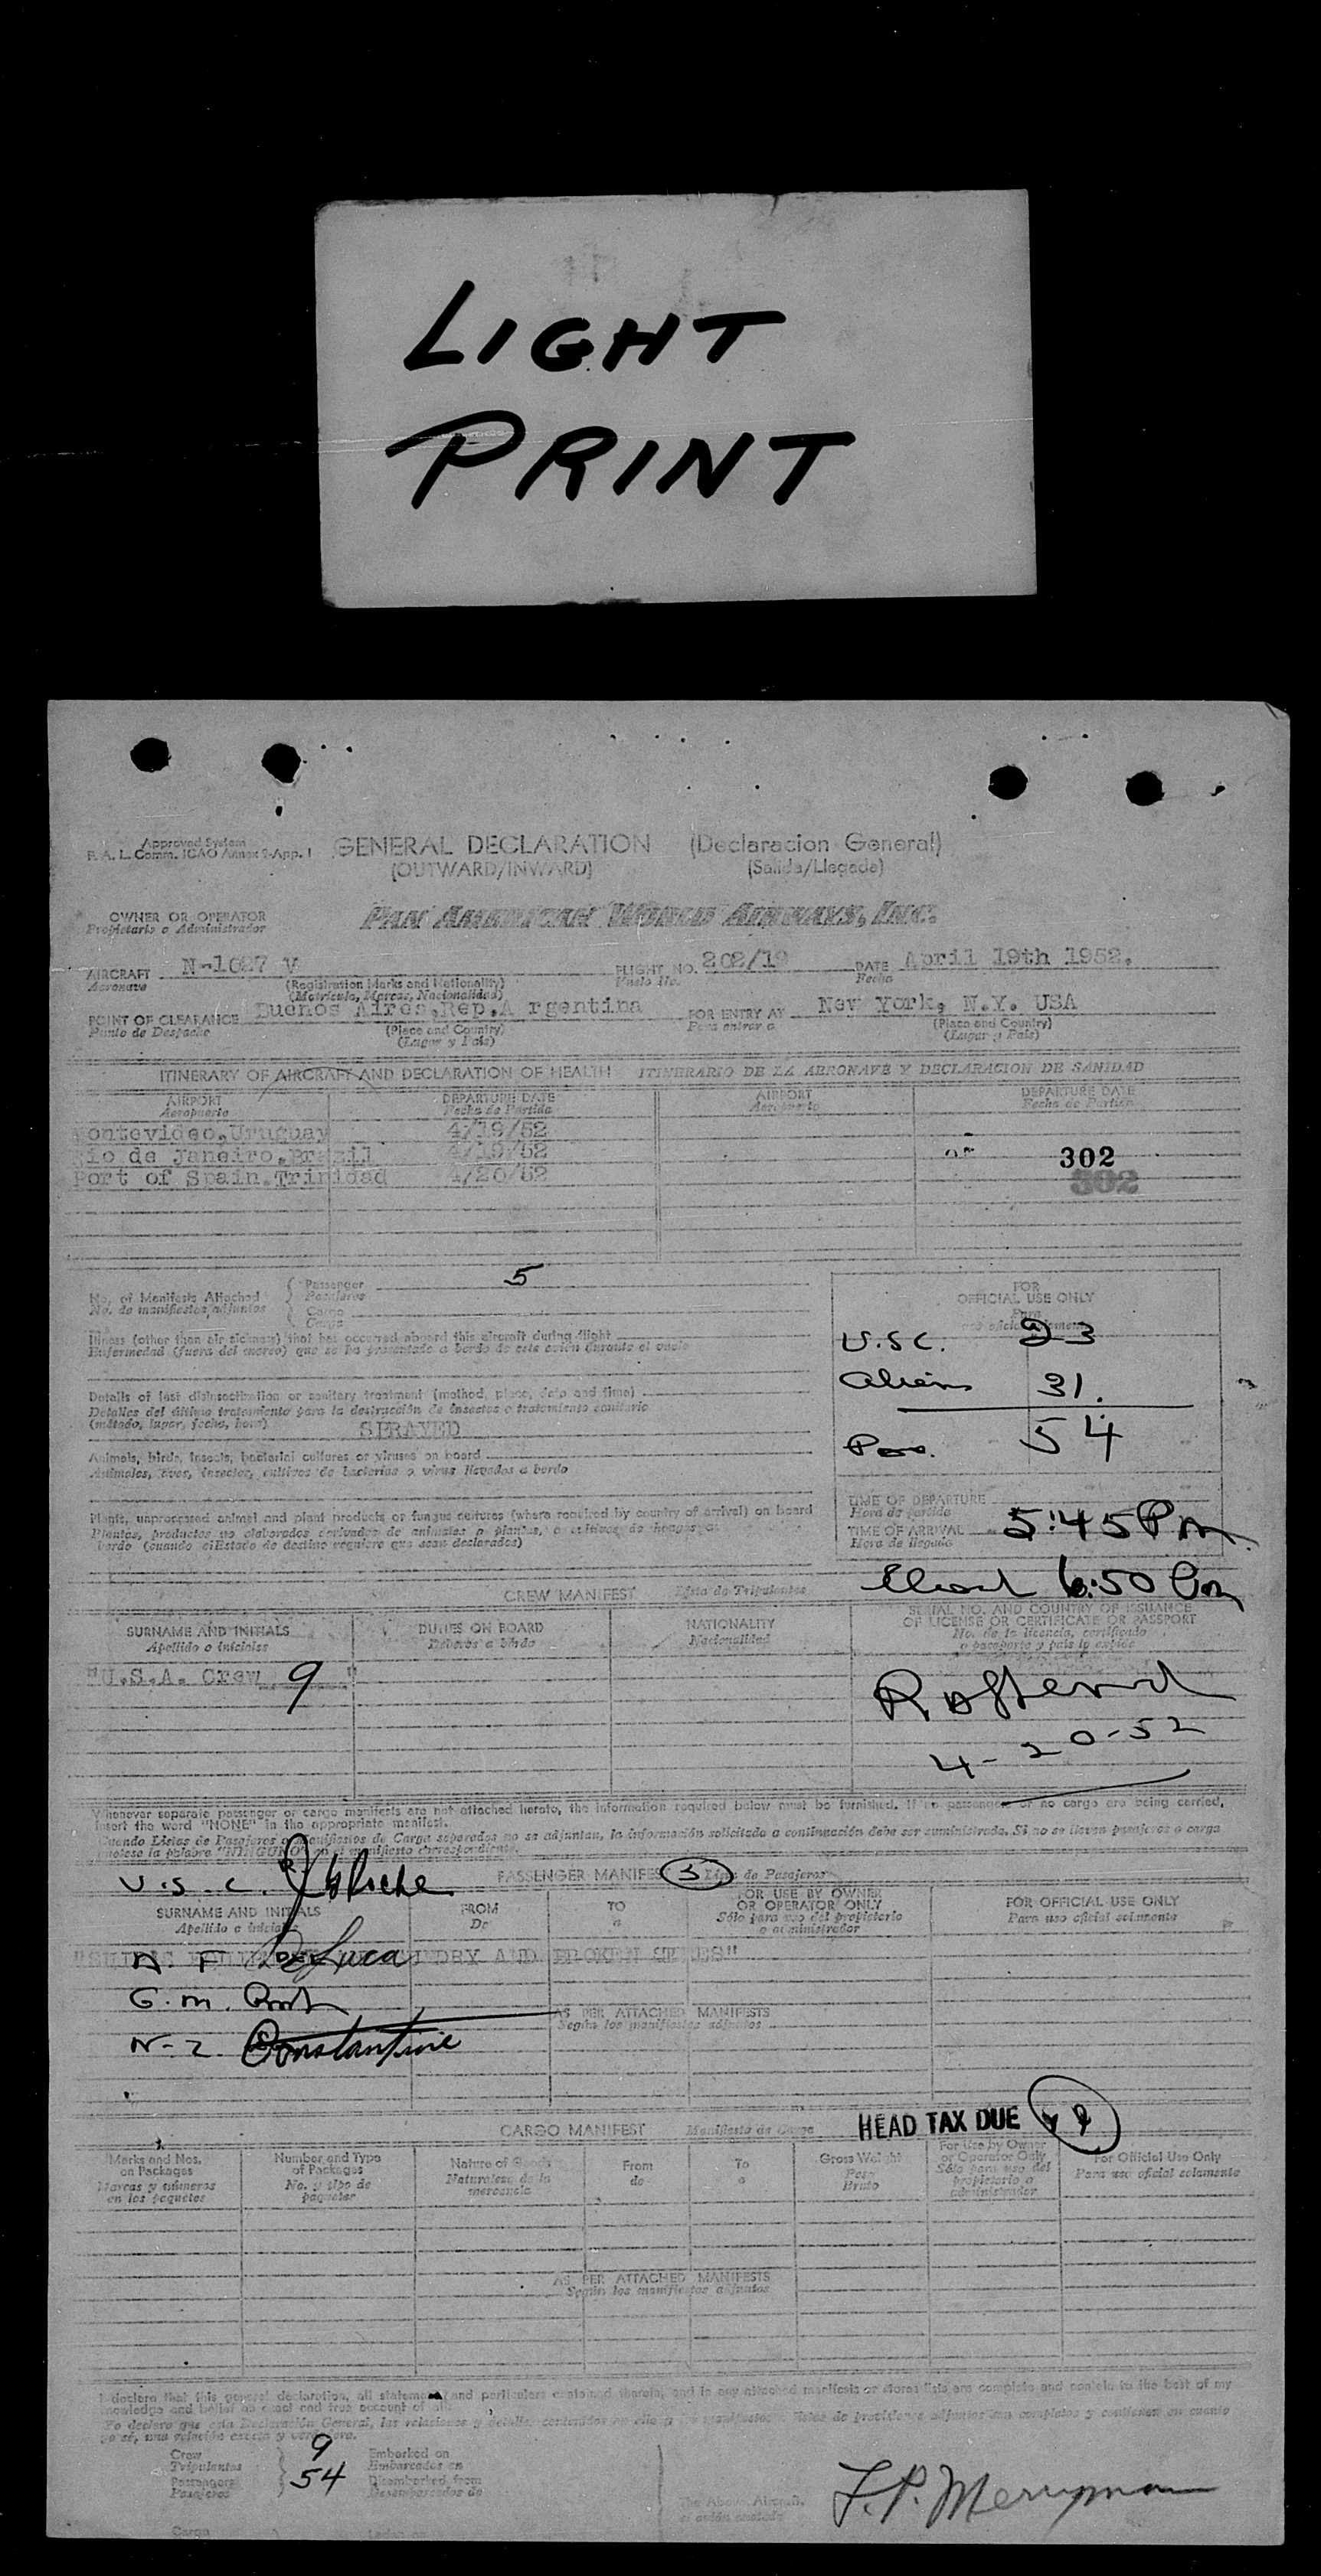 LIGHT
PRINT
Approved System
F. A. L. Comm. ICAO Annex 9-App. 1
GENERAL DECLARATION (Declaracion General)
(OUTWARD/INWARD) (Salida/Llegada)
OWNER OR OPERATOR PAN AMERICAN WORLD AIRWAYS, INC.
Propietario o Administrador
AIRCRAFT N-1027 V FLIGHT NO. 202/19 DATE April 19th 1952.
Aeronave (Registration Marks and Nationality) Vuelo No. Fecha
(Matricula, Marcas, Nacionalidad)
POINT OF CLEARANCE Buenos Aires,Rep.A rgentina FOR ENTRY AT New York, N.Y. USA
Punto de Despacho (Place and Country) Para entrar a (Place and Country)
(Lugar y Pais) (Lugar y Pais)
ITINERARY OF AIRCRAFT AND DECLARATION OF HEALTH ITINERARIO DE LA AERONAVE Y DECLARACION DE SANIDAD
AIRPORT DEPARTURE DATE AIRPORT DEPARTURE DATE
Aeropuerto Fecha de Partida Aeropuerto Fecha de Partida
ontevideo,Uruguay 4/19/52
io de Janeiro,Brazil 4/19/52 302
Port of Spain.Trinidad 4/20/52 302
No. of Manifests Attached Passenger 5
No. de manifiestos adjuntos Pasajeros
Cargo
Carga
FOR
OFFICIAL USE ONLY
Para
Illness (other than air sickness) that has occurred aboard this aircraft during flight
Enfermedad (fuera del mareo) que se ha presentado a bordo de este avion durante el vuelo
U.S.C. 23
Aliens 31.
Details of last disinsectization or sanitary treatment (method, place, date and time)
Detalles del último tratamiento para la destrucción de insectos o tratamiento sanitario
(método, lugar, fecha, hora) SPRAYED
Pass. 54
Animals, birds, insects, bacterial cultures or viruses on board
Animales, aves, insectos, cultivos de bacterias o virus llevados a bordo
Plants, unprocessed animal and plant products or fungus cultures (where required by country of arrival) on board
Plantas, productos no elaborados derivados de animales o plantas, o cultivos de hongos a
bordo (cuando el Estado de destino requiere que sean declarados)
TIME OF DEPARTURE
Hora de partida
TIME OF ARRIVAL 5:45 PM
Hora de llegada
6:50 Pm
CREW MANIFEST Lista de Tripulantes
SURNAME AND INITIALS DUTIES ON BOARD NATIONALITY SERIAL NO. AND COUNTRY OF ISSUANCE
OF LICENSE OR CERTIFICATE OR PASSPORT
Apellido o iniciales Deberes a bordo Nacionalidad No. de la licencia, certificado
o pasaporte y pais lo expide
"U.S.A. Crew 9 "
4-20-52
Whenever separate passenger or cargo manifests are not attached hereto, the information required below must be furnished. If no passengers or no cargo are being carried,
insert the word "NONE" in the appropriate manifest.
Cuando Listas de Pasajeros o Manifiestos de Carga separados no se adjuntan, la información solicitada a continuación debe ser suministrada. Si no se llevan pasajeros o carga
anótese la palabra "NINGUNO" en el manifiesto correspondiente.
PASSENGER MANIFEST 5 Lista de Pasajeros
U.S.C.
SURNAME AND INITIALS FROM TO FOR USE BY OWNER
OR OPERATOR ONLY FOR OFFICIAL USE ONLY
Apellido e iniciales De a Sólo para uso del propietario
o administrador Para uso oficial solamente
A. F. DeLuca
G. M.
N-Z Constantine
AS PER ATTACHED MANIFESTS
Según los manifiestos adjuntos
HEAD TAX DUE
CARGO MANIFEST Manifiesto de Carga
Marks and Nos.
on Packages Number and Type
of Packages Nature of Goods From To Gross Weight For Use by Owner
or Operator Only For Official Use Only
Marcas y números
en los paquetes No. y tipo de
paquetes Naturaleza de la
mercancia de a Peso
Bruto Sólo para uso del
propietario o
administrador Para uso oficial solamente
AS PER ATTACHED MANIFESTS
Según los manifiestos adjuntos
I declare that this general declaration, all statements and particulars contained therein, and in any attached manifests or stores lists are complete and contain to the best of my
knowledge and belief an exact and true account of all
Crew 9 Embarked on
Tripulantes Embarcados en
Passengers 54 Disembarked from
Pasajeros Desembarcados de
The Above Aircraft.
Cargo
F.P. Merryman